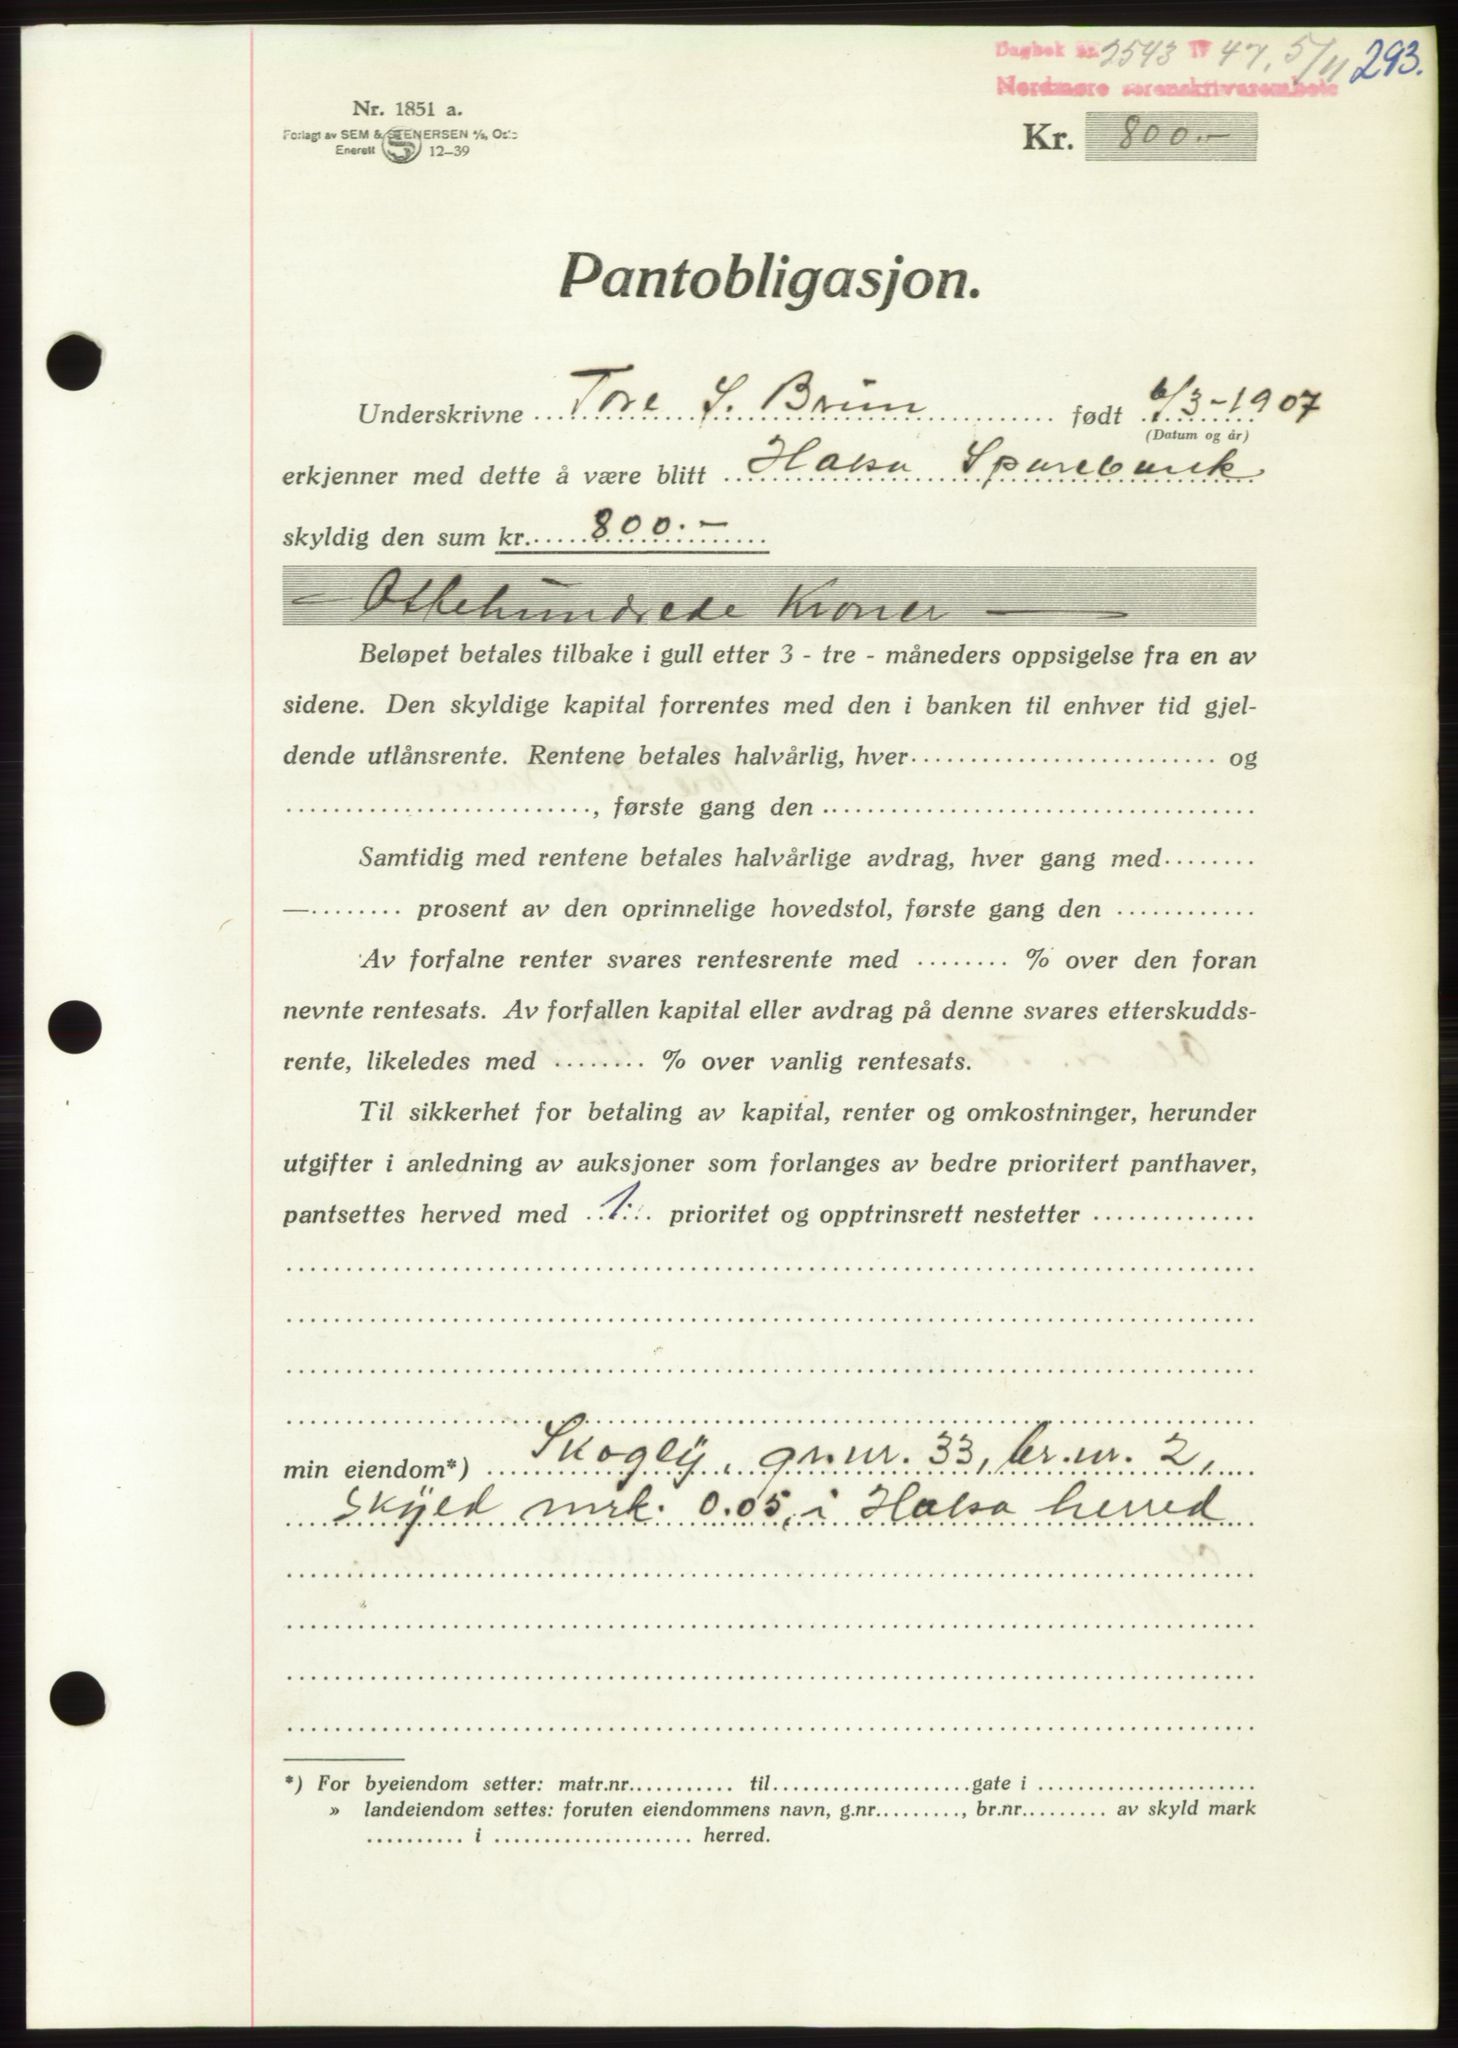 Dagbok nr. 2543 19 47, 5/11 293.
Nordmøre sorenskriverembete
Nr. 1851 a.
Forlagt av SEM & STENERSEN A/S, Oslo
Enerett 12-39
Kr. 800.-
Pantobligasjon.
Underskrivne Tore S. Brun født 6/3-1907
(Datum og år)
erkjenner med dette å være blitt Halsa Sparebank
skyldig den sum kr. 800.-
- Ottehundrede Kroner -
Beløpet betales tilbake i gull etter 3 - tre - måneders oppsigelse fra en av
sidene. Den skyldige kapital forrentes med den i banken til enhver tid gjel-
dende utlånsrente. Rentene betales halvårlig, hver.............................. og
.............................., første gang den ..............................
Samtidig med rentene betales halvårlige avdrag, hver gang med.........
—......... prosent av den oprinnelige hovedstol, første gang den .............
Av forfalne renter svares rentesrente med ......... % over den foran
nevnte rentesats. Av forfallen kapital eller avdrag på denne svares etterskudds-
rente, likeledes med ......... % over vanlig rentesats.
Til sikkerhet for betaling av kapital, renter og omkostninger, herunder
utgifter i anledning av auksjoner som forlanges av bedre prioritert panthaver,
pantsettes herved med 1. prioritet og opptrinsrett nestetter ...............
min eiendom*) Skogly, gr.nr. 33, br.nr. 2,
Skyld mrk. 0.05, i Halsa herred
*) For byeiendom setter: matr.nr........... til....................gate i ......................
» landeiendom settes: foruten eiendommens navn, g.nr........., br.nr......... av skyld mark
.......... i .................... herred.